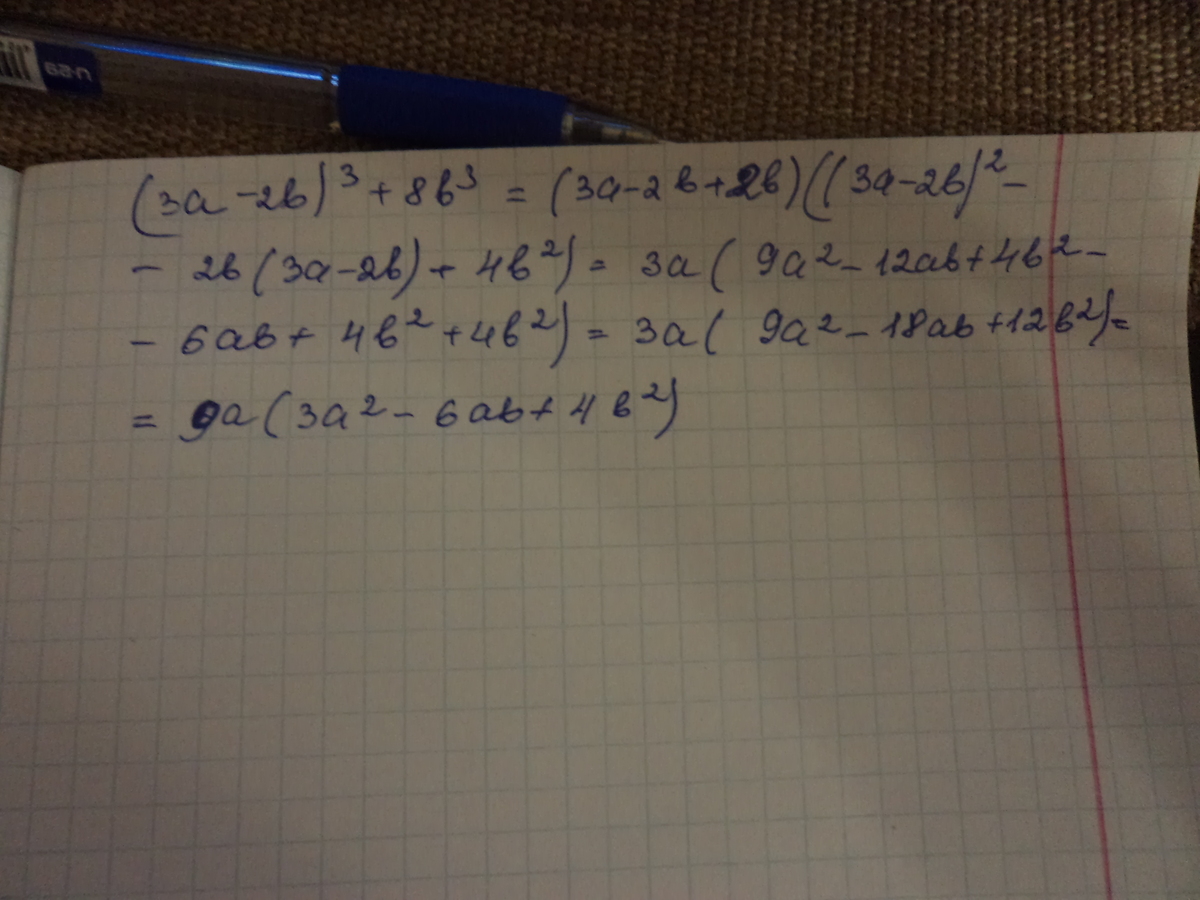 U-29
(3a-2b)³+8b³ = (3a-2b+2b)((3a-2b)²-
- 2b(3a-2b)+4b²) = 3a(9a²-12ab+4b²-
- 6ab+4b²+4b²) = 3a(9a²-18ab+12b²)=
= 9a(3a²-6ab+4b²)